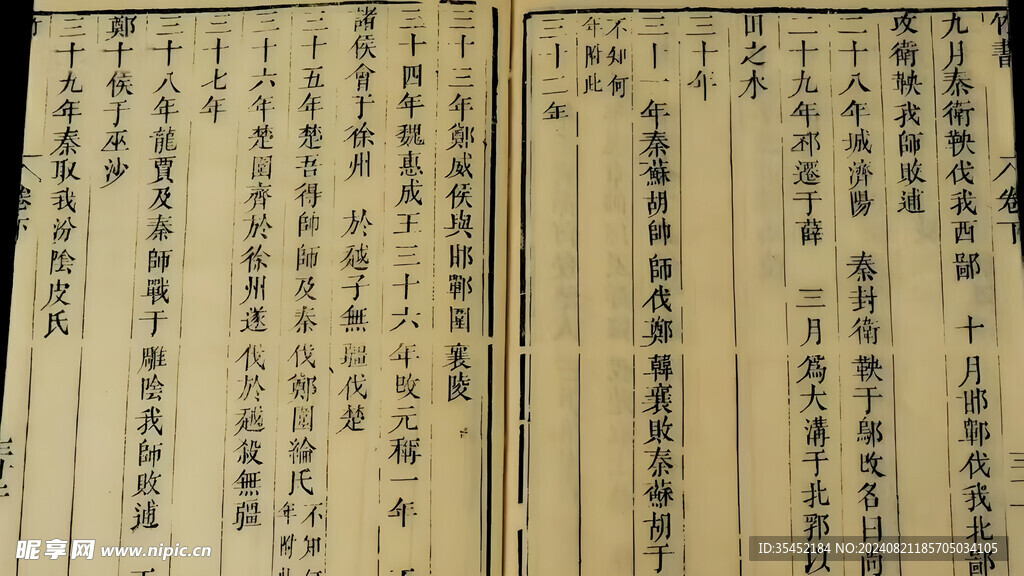 竹書
六卷下
九月秦衛鞅伐我西鄙 十月邯鄲伐我北鄙
攻衛鞅我師敗逋
二十八年城濟陽 秦封衛鞅于鄔改名曰
二十九年邳遷于薛 三月爲大溝于北郛以
田之水
三十年
三十一年秦蘇胡帥師伐鄭韓襄敗秦蘇胡于
不知何
年附此
三十二年
三十三年鄭威侯與邯鄲圍襄陵
三十四年魏惠成王三十六年改元稱一年
諸侯會于徐州 於越子無疆伐楚
三十五年楚吾得帥師及秦伐鄭圍綸氏
不知
年附
三十六年楚圍齊於徐州遂伐於越殺無彊
三十七年
三十八年龍賈及秦師戰于雕陰我師敗逋
鄭十侯于巫沙
三十九年秦取我汾陰皮氏
卷下
昵享网 www.nipic.cn
ID:35452184 NO:20240821185705034105